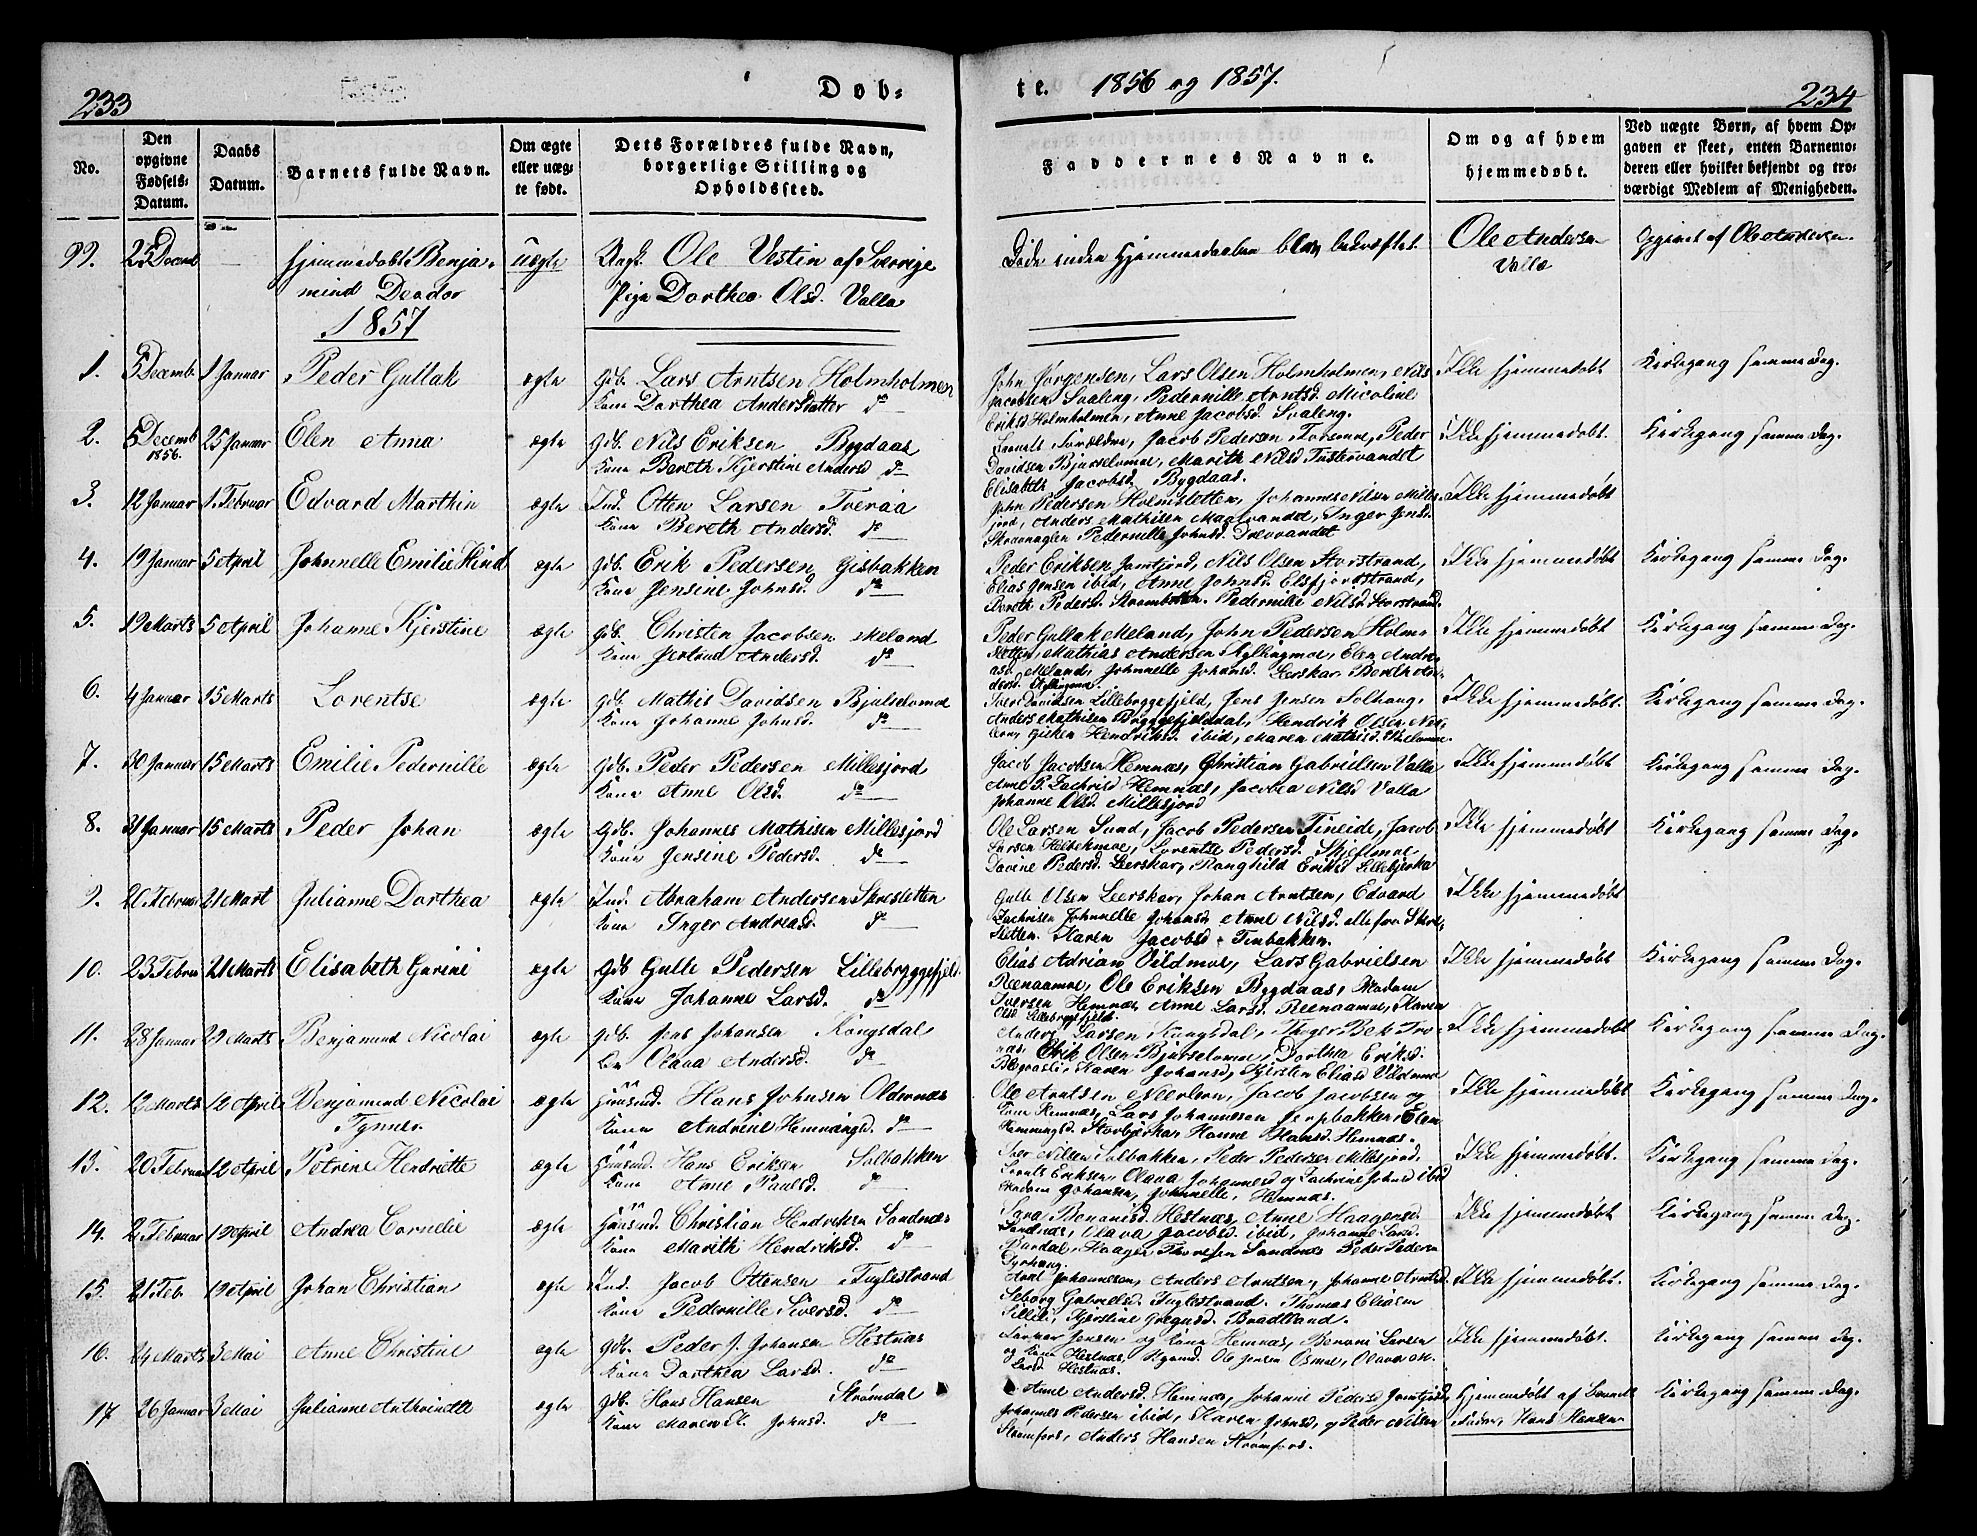 233
Døb-
te. 1856 og 1857.
234
No.
Den opgivne Fødsels-Datum.
Daabs Datum.
Barnets fulde Navn.
Om ægte eller uæg-te født.
Dets Forældres fulde Navn, borgerlige Stilling og Opholdssted.
Faddernes Navne.
Om og af hvem hjemmedøbt.
Ved uægte Børn, af hvem Op-gaven er skeet, enten Barnemo-deren eller hvilket bekjendt og tro-værdigt Medlem af Menigheden.
99. 25 Decemb — hjemmedøbt Benja- uægte Ungk. Ole Vestin af Sverrige
mind Deodor Pige Dorthea Olsd. Valla
Døde inden Hjemmedaaben blev bekræftet. Ole Andersen Valla Opgivet af Ole Andersen.
1857
1. 5 Decemb. 1 Januar Peder Gullak ægte Gdb. Lars Arntsen Holmholmen
Kone Dorthea Andersdatter do
John Jørgensen, Lars Olsen Holmholmen, Nils
Jacobsen Svaleng, Pedernille Arntsd. Nicoline
Eriksd Holmholmen, Anne Jacobsd. Svaleng.
Ikke hjemmedøbt Kirkegang samme Dag.
2. 5 Decemb 1856. 25 Januar Elen Anna ægte Gdb. Nils Eriksen Bygdaas
Kone Bereth Kjerstine Andersd do
Forældre, Jacob Pedersen Forsmoe, Peder
Davidsen Bjurselvmoe, Marith Nilsd Tustervandet
Elisabeth Jacobsd. Bygdaas.
Ikke hjemmedøbt. Kirkegang samme Dag.
3. 12 Januar 1. Februar Edvard Marthin ægte Ind. Otten Larsen Tveraa
Kone Bereth Andersd. do
John Pedersen Holmsletten, Johannes Nilsen Milles-
jord, Anders Mathisen Inger Jensd.
Pedernille Johnsd.
Ikke hjemmedøbt
4. 19 Januar 5 April Johnnelle Emilie Hind ægte Gdb. Erik Pedersen Gisbakken
Kone Jensine Johnsd. do
Peder Eriksen Jamtjord, Nils Olsen Storstrand,
Elias Jensen ibid, Anne Johnsd. Elsfjordstrand,
Bereth Pedersd. Strombotten. Pedernille Nilsd. Storstrand.
Ikke hjemmedøbt Kirkegang samme Dag.
5. 19 Marts 5 April Johanne Kjerstine ægte Gdb. Christen Jacobsen Meland
Kone Gertrud Andersd. do
Peder Gullak Meland, John Pedersen Holm-
sletten, Mathias Andersen Elen Andre-
asd. Meland, Johnnelle Johansd. Leerskar
Ikke hjemmedøbt Kirkegang samme Dag.
6. 4 Januar 15 Marts Lorentse ægte Gdb. Mathis Davidsen Bjurselvmo
Kone Johanne Johnsd. do
Davidsen Lillebryggefjeld, Jens Jensen Solhaug,
Anders Mathisen Bryggefjelddal, Hendrik Olsen
Hendriksd. ibid, Maren Mathisd.
Ikke hjemmedøbt. Kirkegang samme Dag.
7. 30 Januar 15 Marts Emilie Pedernille ægte Gdb. Peder Pedersen Millesjord
Kone Anne Olsd. do
Jacob Jacobsen Hemnæs, Christian Gabrielsen Valla
Anne P. Zachrisd Hemnæs, Jacobea Nilsd Valla
Johanne Olsd. Millesjord
Ikke hjemmedøbt Kirkegang samme Dag.
8. 31 Januar 15 Marts Peder Johan ægte Gdb. Johannes Mathisen Millesjord
Kone Jensine Pedersd. do
Ole Larsen Sund, Jacob Pedersen Fineide, Jacob
Larsen Lorentse Pedersd. Skjelmoe
Davine Pedersd. Leerskar, Ranghild Eriksd. Lillebjerka
Ikke hjemmedøbt Kirkegang samme Dag.
9. 20. Februar 21 Mart Julianne Dorthea ægte Ind. Abraham Andersen Skresletten
Kone Inger Andreasd. do
Gulle Olsen Leerskar, Johan Arntsen, Edvard
Zachrisen Johnnelle Johansd, Anne Nilsd. alle fra Skre-
sletten. Karen Jacobsd. Finbakken.
Ikke hjemmedøbt
10. 23. Februar 21 Marts Elisabeth Gurine ægte Gdb Gulle Pedersen Lillebryggefjeld.
Kone Johanne Larsd. do
Elias Adrian Vildmoe, Lars Gabrielsen
Reenaamoe, Ole Eriksen Bygdaas, Madam
Iversen Hemnæs, Anne Larsd. Reenaamoe, Karen
Olsd. Lillebryggefjeld.
Ikke hjemmedøbt Kirkegang samme Dag.
11. 28 Januar 29 Marts Benjamind Nicolai ægte Gdb. Jens Johansen Kongsdal
Kn Olava Andersd. do
Anders Larsen Kongsdal,
Erik Olsen Bjurselvmoe, Dorthea Eriksd.
Karen Johansd, Kjersten Eliasd Vildmoe
Ikke hjemmedøbt Kirkegang samme Dag.
12. 12 Marts 12 April Benjamind Nicolai Tynner. ægte Huusmd. Hans Johnsen Oldernæs
Kone Andrine Hemmingsd. do
Ole Arntsen Jacob Jacobsen og
Kone Hemnæs, Lars Johannesen Elen
Hemmingsd. Storbjerka, Hanne Hansd. Hemnæs.
Ikke hjemmedøbt Kirkegang samme Dag.
13. 20 Februar 12 April Petrine Hendriette ægte Huusmd. Hans Eriksen Solbakken
Kone Anne Paulsd. do
Iver Nilsen Solbakken, Peder Pedersen Millesjord.
Eriksen, Olava Johannesd og Zachrine Johnsd ibid
Madam Johansen, Johnnelle, Hemnæs.
Ikke hjemmedøbt. Kirkegang samme Dag.
14. 2 Februar 19 April Andrea Cornelie ægte Huusmd. Christian Hendriksen Sandnæs
Kone Marith Hendriksd. do
Sara Benonisd. Hestnæs, Anne Haagensd
Sandnæs, Olava Jacobsd. ibid, Johanne Larsd.
Haagen Thoresen Sandnæs Peder Pedersen
Dyrhaug.
Ikke hjemmedøbt Kirkegang samme Dag.
15. 21 Feb. 19 April Johan Christian ægte Ind. Jacob Ottensen Fuglestrand
Kone Pedernille Siversd. do
Arnt Johannesen, Anders Arntsen, Johanne Arntsd
Seborg Gabrielsd. Fuglestrand. Thomas Eliasen
Kjerstine Gregusd. Bradtland.
Ikke hjemmedøbt. Kirkegang samme Dag.
16. 24 Marts 3 Mai Anne Christine ægte Gdb. Peder J. Johansen Hestnæs
Kone Dorthea Larsd. do
Jensen og Kone Hemnæs, Benoni Larsen
og Kone Hestnæs, Ole Jensen Olava
Larsd. Hestnæs.
Ikke hjemmedøbt. Kirkegang samme Dag.
17 26 Januar 3 Mai Julianne Anthrinette ægte Gdb. Hans Hansen Strømdal
Kone Maren K. Johnsd. do
Anne Andersd. Hemnæs, Johanne Pedersd Jamtjord,
Johannes Pedersen ibid, Karen Johnsd, og Peder Nilsen
Strømfors, Anders Hansen Strømfors.
Hjemmedøbt af Barnets
Fader, Hans Hansen Kirkegang samme Dag.